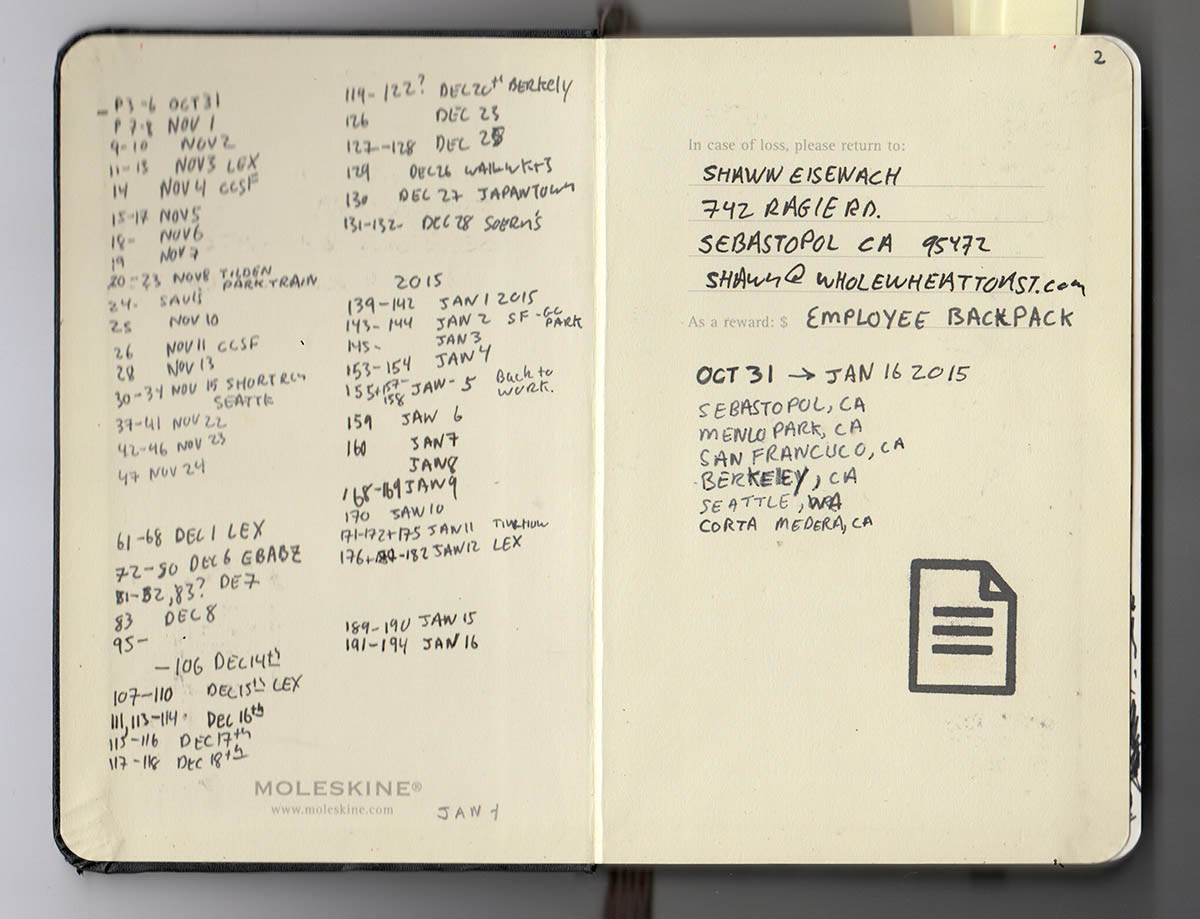 P3-6 OCT 31
P 7-8 NOV 1
9-10 NOV 2
11-13 NOV 3 LEX
14 NOV 4 CCSF
15-17 NOV 5
18- NOV 6
19 NOV 7
20-23 NOV 8 TILDEN
PARK TRAIN
24-
25 NOV 10
26 NOV 11 CCSF
28 NOV 13
30-34 NOV 15 SHORT RUN
SEATTLE
37-41 NOV 22
42-46 NOV 23
47 NOV 24
61-68 DEC 1 LEX
72-80 DEC 6 EBABZ
81-82, 83? DE 7
83 DEC 8
95-
-106 DEC 14th
107-110 DEC 15th LEX
111, 113-114. DEC 16th
115-116 DEC 17th
117-118 DEC 18th
119-122? DEC 20th BERKELY
126 DEC 23
127-128 DEC 25
129 DEC 26
130 DEC 27 JAPANTOWN
131-132- DEC 28
2015
139-142 JAN 1 2015
143-144 JAN 2 SF-GG
PARK
145- JAN 3
153-154 JAN 4
155+157-158 JAN-5 Back to
WORK.
159 JAN 6
160 JAN 7
JAN 8
168-169 JAN 9
170 JAN 10
171-172+175 JAN 11
176+ -182 JAN 12 LEX
189-190 JAN 15
191-194 JAN 16
MOLESKINE®
www.moleskine.com
JAN 1
2
In case of loss, please return to:
SHAWN EISENACH
742 RAGLE RD.
SEBASTOPOL CA 95472
SHAWN@WHOLEWHEATTOAST.com
As a reward: $ EMPLOYEE BACKPACK
OCT 31 → JAN 16 2015
SEBASTOPOL, CA
MENLO PARK, CA
SAN FRANCUCO, CA
BERKELEY, CA
SEATTLE, WA
CORTA MEDERA, CA